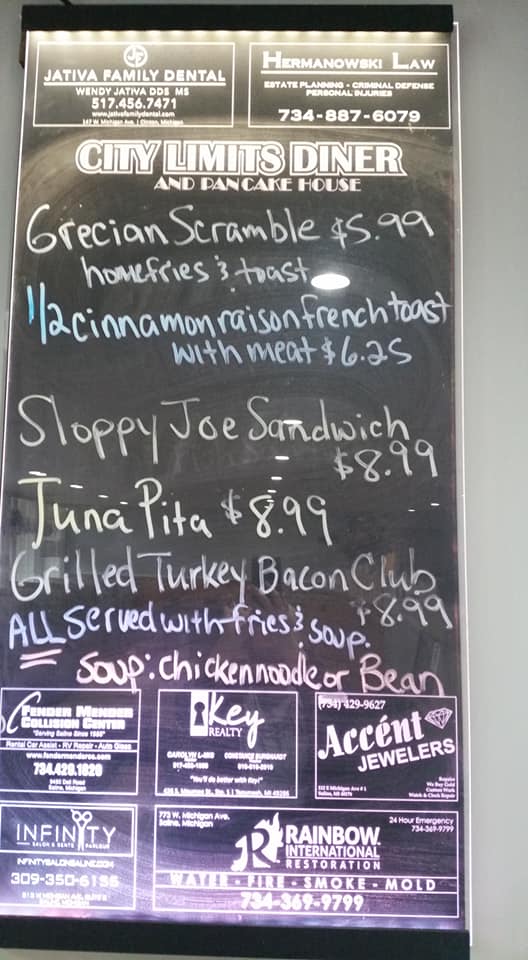 JF
JATIVA FAMILY DENTAL
WENDY JATIVA DDS MS
517.456.7471
www.jativafamilydental.com
HERMANOWSKI LAW
ESTATE PLANNING - CRIMINAL DEFENSE
PERSONAL INJURIES
734-887-6079
CITY LIMITS DINER
AND PANCAKE HOUSE
Grecian Scramble $5.99
homefries & toast
1/2 cinnamon raison french toast
with meat $6.25
Sloppy Joe Sandwich
$8.99
Tuna Pita $8.99
Grilled Turkey Bacon Club
$8.99
ALL Served with fries & soup.
Soup: chicken noodle or Bean
FENDER MENDER
COLLISION CENTER
"Serving Saline Since 1988"
Rental Car Assist - RV Repair - Auto Glass
www.fendermendercc.com
734.429.1829
Saline, Michigan
Key
REALTY
"You'll do better with Key!"
(734) 429-9627
Accént
JEWELERS
Repairs
We Buy Gold
Custom Work
Watch & Clock Repair
INFINITY
INFINITYSALONSALINE.COM
309-350-6156
773 W. Michigan Ave.
Saline, Michigan
24 Hour Emergency
734-369-9799
RAINBOW
INTERNATIONAL
RESTORATION
WATER - FIRE - SMOKE - MOLD
734-369-9799